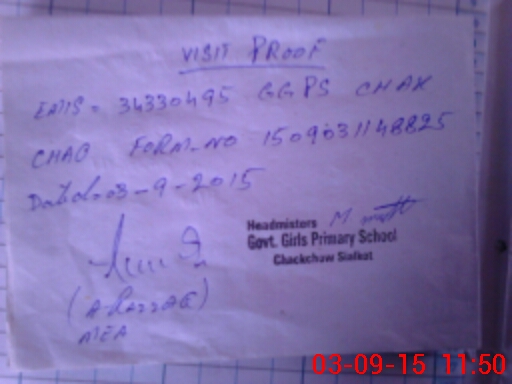 VISIT PROOF
EMIS = 34330495 GGPS CHAK
CHAO FORM-NO 1509031148825
Dated: 03-9-2015
Headmisters
Govt. Girls Primary School
Chackchaw Sialkot
(A. Razzaq)
MEA
03-09-15 11:50